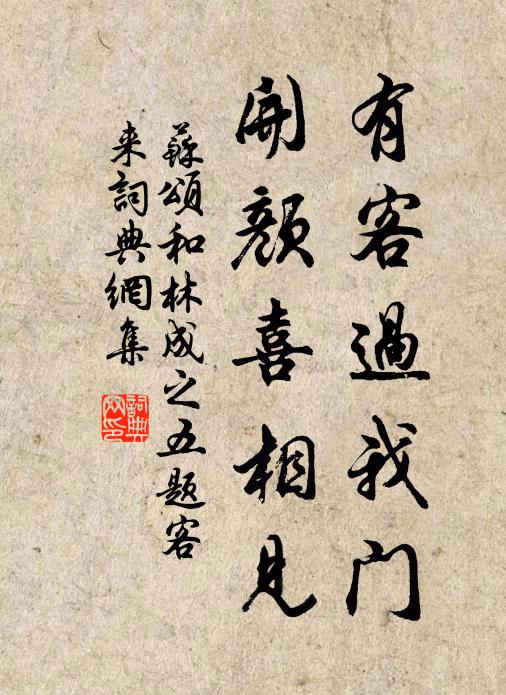 有客過我門
開顏喜相見
蘇頌和林成之五题客
来詞典網集
詞典網印